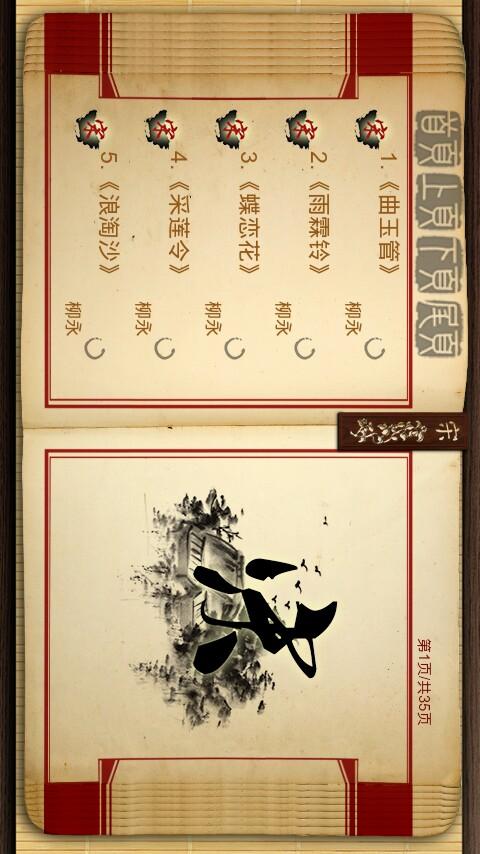 首页 上页 下页 尾页
1.《曲玉管》 柳永
2.《雨霖铃》 柳永
3.《蝶恋花》 柳永
4.《采莲令》 柳永
5.《浪淘沙》 柳永
宋
宋
宋
宋
宋
第1页/共35页
宋